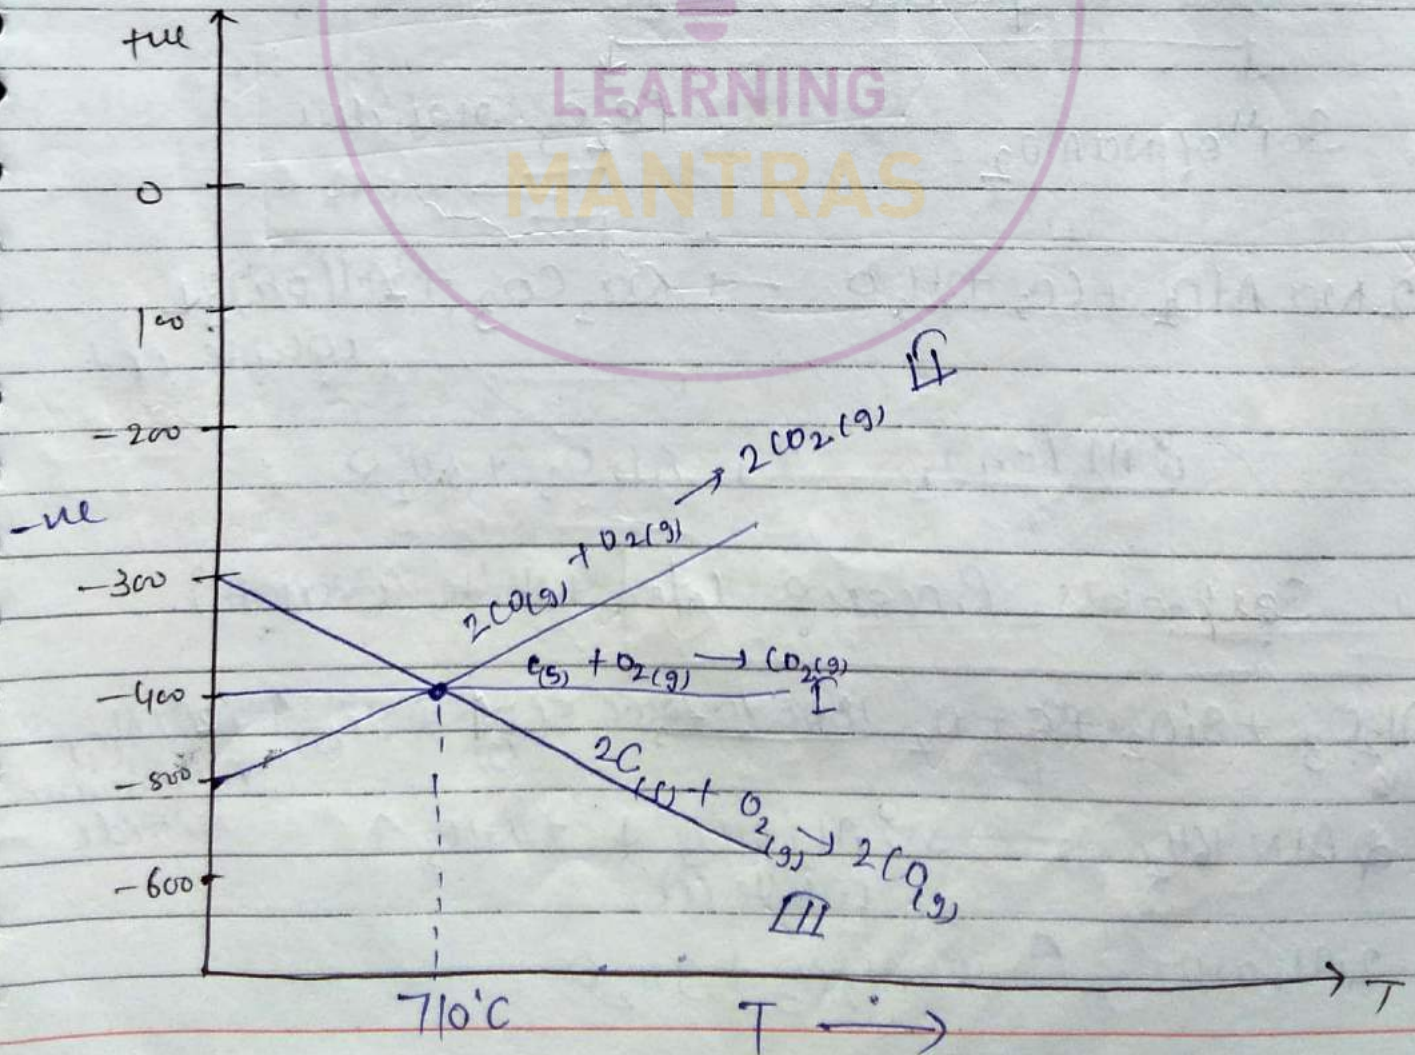 LEARNING
MANTRAS
+ve
0
100
-200
-ve
-300
-400
-500
-600
II
2CO(g) + O2(g) → 2CO2(g)
C(s) + O2(g) → CO2(g)
I
2C(s) + O2(g) → 2CO(g)
III
710°C
T →
T